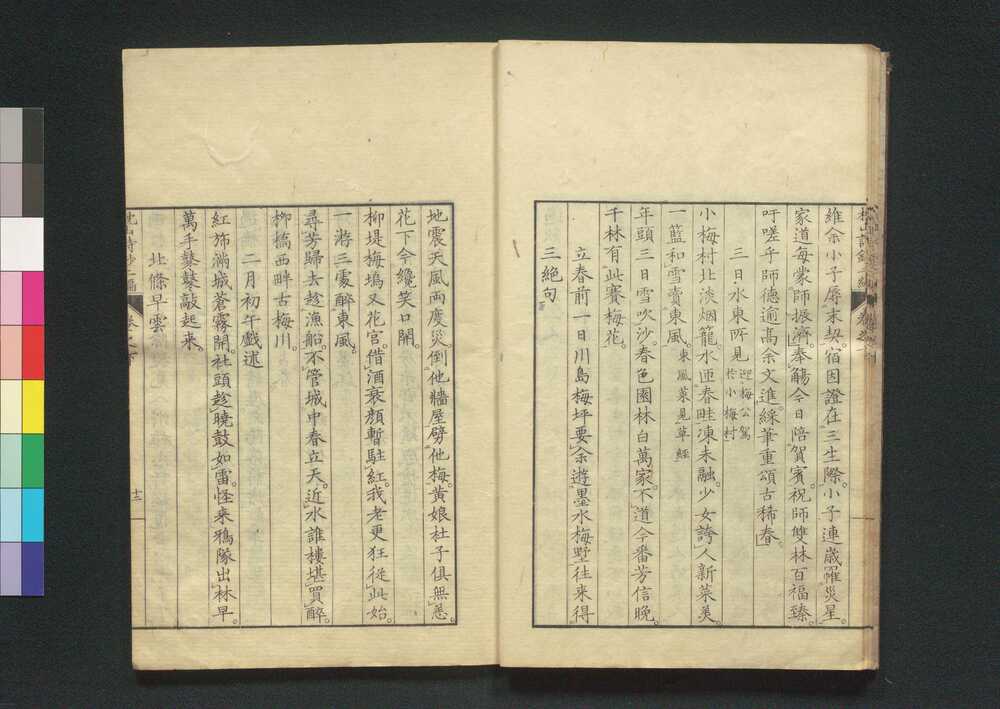 維余小子辱末契。宿因證在三生際。小子連歲罹災星。
家道每蒙師振濟。奉觴今日陪賀賓。祝師雙林百福臻。
吁嗟乎師德逾高余文進。綵筆重頌古稀春。
三日水東所見 迎梅公駕於小梅村
小梅村北淡烟籠。水匝春畦凍未融。少女誇人新菜美。
一籃和雪賣東風。東風菜見草經
年頭三日雪吹沙。春色園林白萬家。不道今番芳信晚。
千林有此賽梅花。
立春前一日川島梅坪要余遊墨水梅墅往来得
三絶句
地震天風両度災。倒他牆屋劈他梅。黄娘杜子俱無恙。
花下今纔笑口開。
柳堤梅塢又花宮。借酒衰顏暫駐紅。我老更狂從此始。
一游三處醉東風。
尋芳歸去趁漁船。不管城中春立天。近水誰樓堪買醉。
柳橋西畔古梅川。
二月初午戲述
紅饰滿城蒼霧開。社頭趁曉鼓如雷。怪来鴉隊出林早。
萬手鼕鼕敲起来。
北條早雲
十二